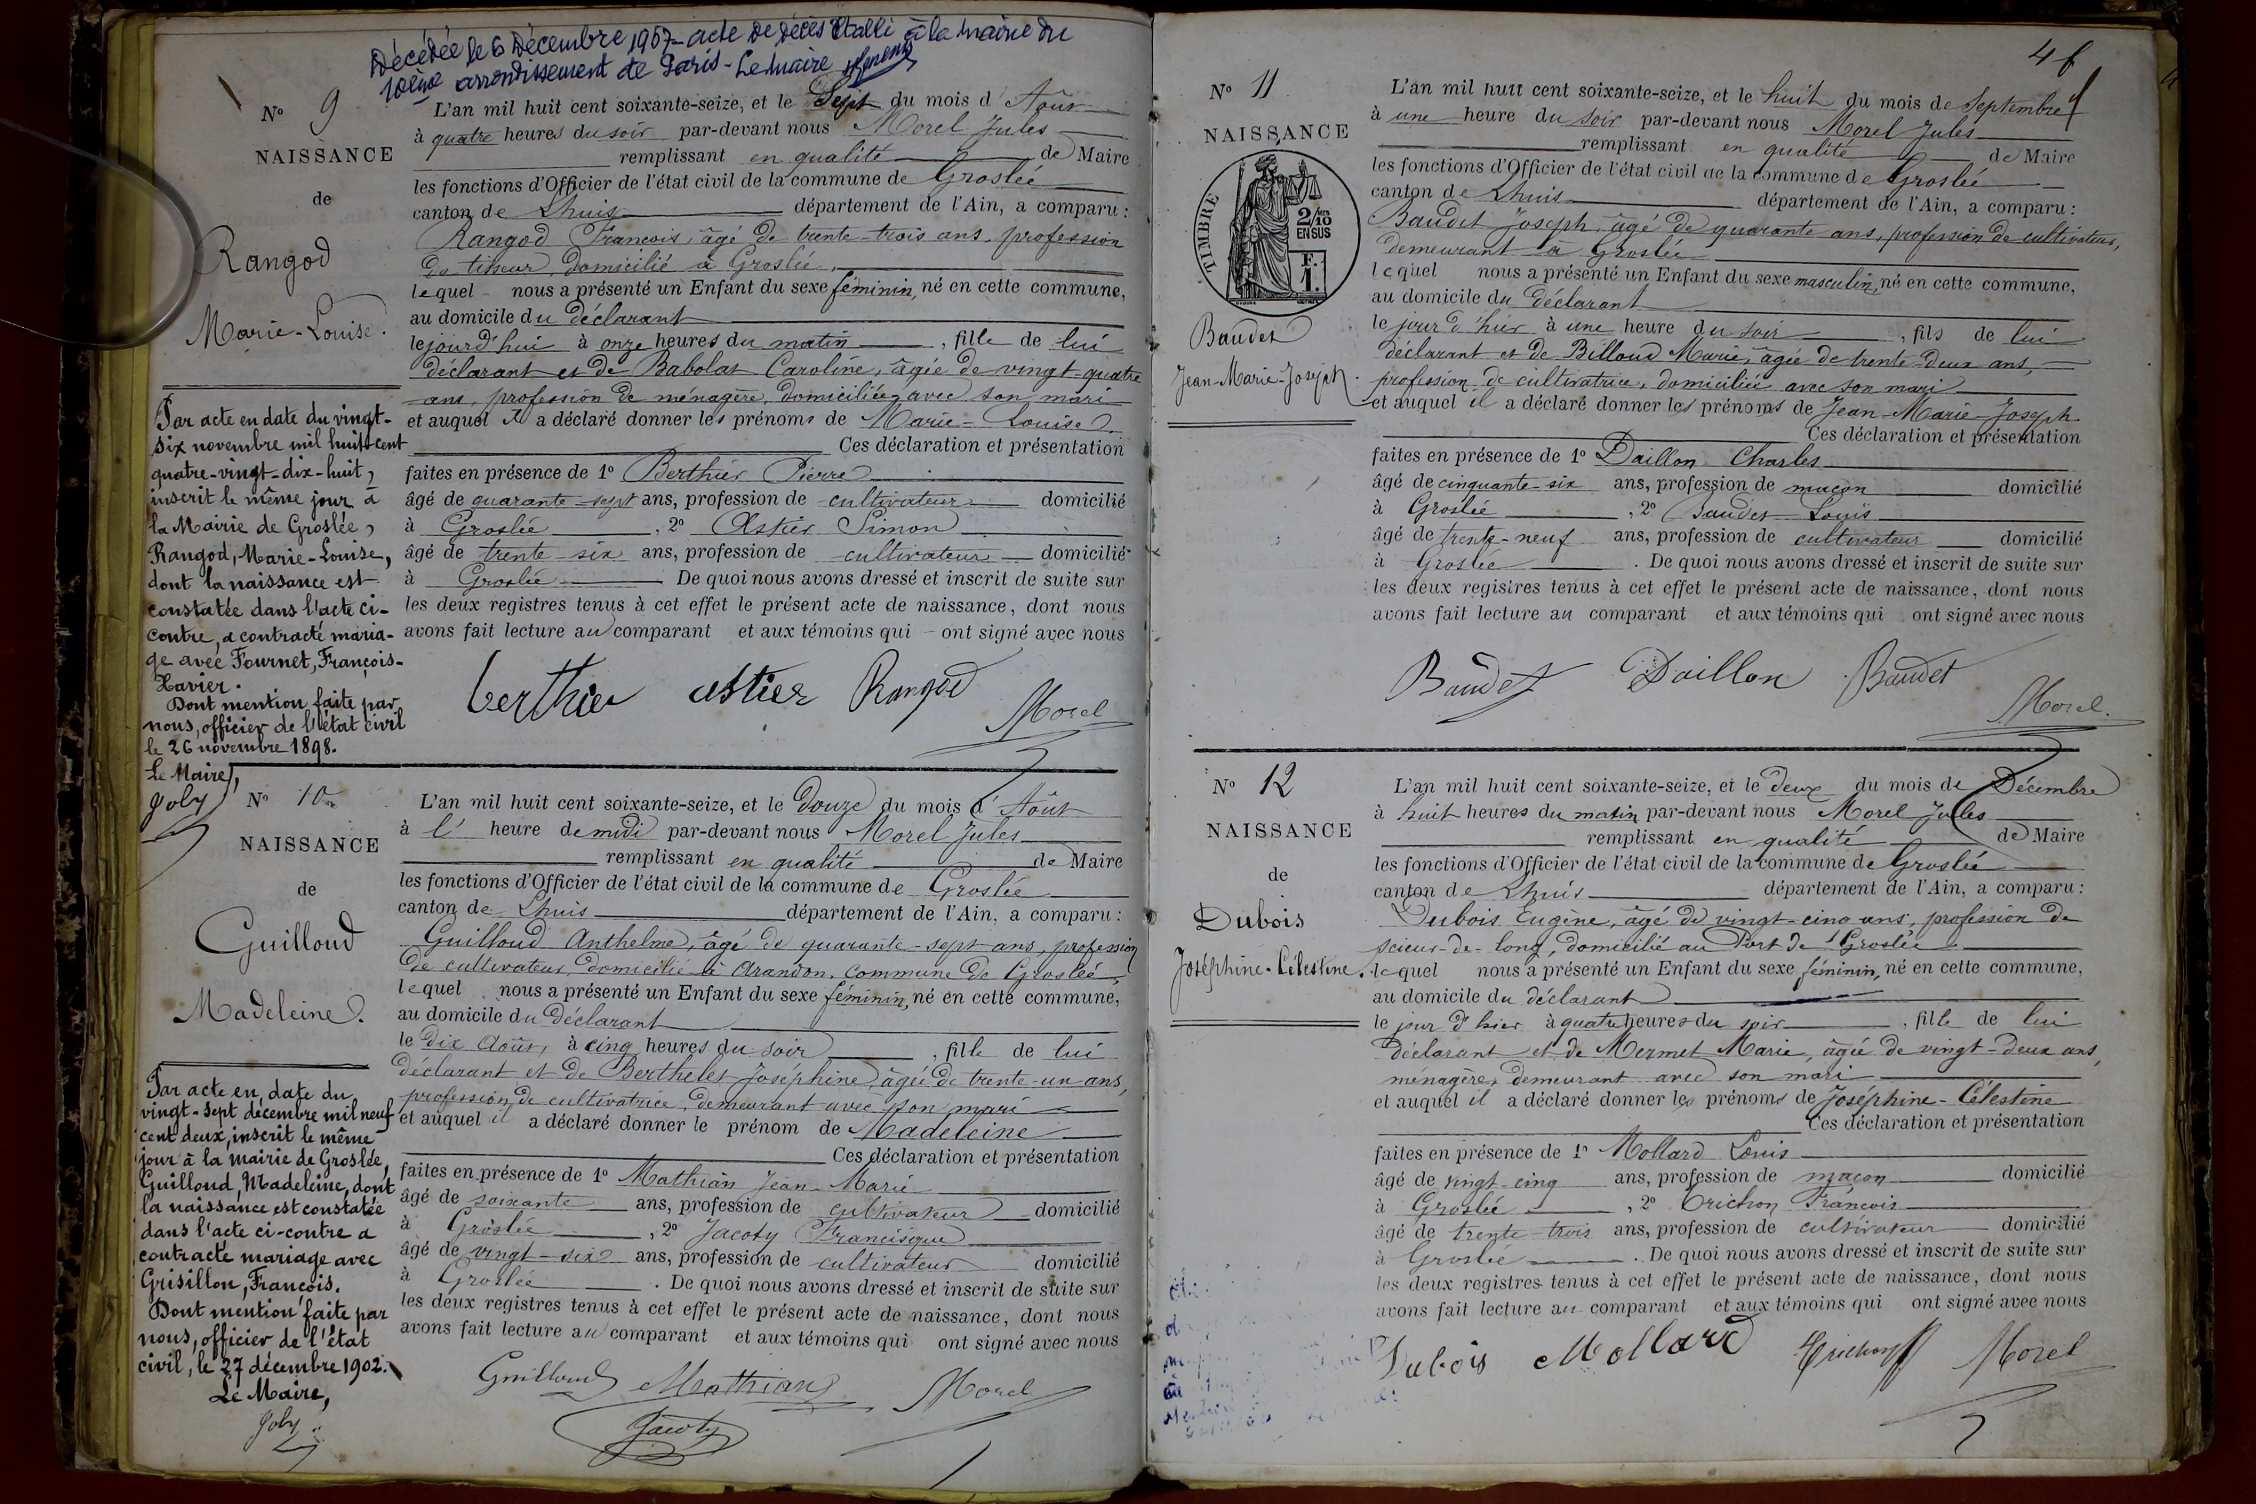 Décédée le 6 Décembre 1967 - acte de décès établi à la mairie du
10ème arrondissement de Paris - Le Maire
N° 9
NAISSANCE
de
Rangod
Marie-Louise.
Par acte en date du vingt-
six novembre mil huit-cent
quatre-vingt-dix-huit,
inscrit le même jour à
la Mairie de Groslée,
Rangod, Marie-Louise,
dont la naissance est
constatée dans l'acte ci-
contre, a contracté maria-
ge avec Fournet, François-
Xavier.
Dont mention faite par
nous, officier de l'état civil
le 26 novembre 1898.
Le Maire,
Joly
L'an mil huit cent soixante-seize, et le Sept du mois d'Août
à quatre heures du soir par-devant nous Morel Jules
remplissant en qualité de Maire
les fonctions d'Officier de l'état civil de la commune de Groslée
canton de Lhuis département de l'Ain, a comparu :
Rangod François, âgé de trente-trois ans, profession
de tisseur, domicilié à Groslée,
lequel nous a présenté un Enfant du sexe féminin, né en cette commune,
au domicile du déclarant
le jourd'hui à onze heures du matin, fille de lui
déclarant et de Babolat Caroline, âgée de vingt-quatre
ans, profession de ménagère, domiciliée avec son mari
et auquel il a déclaré donner les prénoms de Marie-Louise.
Ces déclaration et présentation
faites en présence de 1° Berthier Pierre
âgé de quarante-sept ans, profession de cultivateur domicilié
à Groslée, 2° Astier Simon
âgé de trente-six ans, profession de cultivateur domicilié
à Groslée De quoi nous avons dressé et inscrit de suite sur
les deux registres tenus à cet effet le présent acte de naissance, dont nous
avons fait lecture au comparant et aux témoins qui ont signé avec nous
berthier astier Rangod
Morel
N° 10
NAISSANCE
de
Guilloud
Madeleine.
Par acte en date du
vingt-sept décembre mil neuf
cent deux, inscrit le même
jour à la mairie de Groslée,
Guilloud, Madeleine, dont
la naissance est constatée
dans l'acte ci-contre a
contracté mariage avec
Grisillon, François.
Dont mention faite par
nous, officier de l'état
civil, le 27 décembre 1902.
Le Maire,
Joly
L'an mil huit cent soixante-seize, et le Douze du mois d'Août
à l' heure de midi par-devant nous Morel Jules
remplissant en qualité de Maire
les fonctions d'Officier de l'état civil de la commune de Groslée
canton de Lhuis département de l'Ain, a comparu :
Guilloud Anthelme, âgé de quarante-sept ans, profession
de cultivateur, domicilié à Arandon, commune de Groslée,
lequel nous a présenté un Enfant du sexe féminin, né en cette commune,
au domicile du déclarant
le dix Août, à cinq heures du soir, fille de lui
déclarant et de Berthelet Joséphine, âgée de trente-un ans,
profession de cultivatrice, demeurant avec son mari
et auquel il a déclaré donner le prénom de Madeleine
Ces déclaration et présentation
faites en présence de 1° Mathian Jean-Marie
âgé de soixante ans, profession de cultivateur domicilié
à Groslée, 2° Jacoty Francisque
âgé de vingt-six ans, profession de cultivateur domicilié
à Groslée. De quoi nous avons dressé et inscrit de suite sur
les deux registres tenus à cet effet le présent acte de naissance, dont nous
avons fait lecture au comparant et aux témoins qui ont signé avec nous
Guilloud Mathian Morel
Jacoty
N° 11
NAISSANCE
TIMBRE
2/10
EN SUS
F.
1.
Baudet
Jean-Marie-Joseph.
L'an mil huit cent soixante-seize, et le huit du mois de Septembre
à une heure du soir par-devant nous Morel Jules
remplissant en qualité de Maire
les fonctions d'Officier de l'état civil de la commune de Groslée
canton de Lhuis département de l'Ain, a comparu :
Baudet Joseph, âgé de quarante ans, profession de cultivateur,
demeurant à Groslée
lequel nous a présenté un Enfant du sexe masculin, né en cette commune,
au domicile du déclarant
le jour d'hier à une heure du soir, fils de lui
déclarant et de Billoud Marie, âgée de trente-deux ans,
profession de cultivatrice, domiciliée avec son mari
et auquel il a déclaré donner les prénoms de Jean-Marie-Joseph.
Ces déclaration et présentation
faites en présence de 1° Daillon Charles
âgé de cinquante-six ans, profession de maçon domicilié
à Groslée, 2° Baudet Louis
âgé de trente-neuf ans, profession de cultivateur domicilié
à Groslée. De quoi nous avons dressé et inscrit de suite sur
les deux registres tenus à cet effet le présent acte de naissance, dont nous
avons fait lecture au comparant et aux témoins qui ont signé avec nous
Baudet Daillon Baudet
Morel.
N° 12
NAISSANCE
de
Dubois
Joséphine-Célestine.
L'an mil huit cent soixante-seize, et le deux du mois de Décembre
à huit heures du matin par-devant nous Morel Jules
remplissant en qualité de Maire
les fonctions d'Officier de l'état civil de la commune de Groslée
canton de Lhuis département de l'Ain, a comparu :
Dubois Eugène, âgé de vingt-cinq ans, profession de
scieur-de-long, domicilié au Port de Groslée
lequel nous a présenté un Enfant du sexe féminin, né en cette commune,
au domicile du déclarant
le jour d'hier à quatre heures du soir, fille de lui
déclarant et de Mermet Marie, âgée de vingt-deux ans,
ménagère, demeurant avec son mari
et auquel il a déclaré donner les prénoms de Joséphine-Célestine
Ces déclaration et présentation
faites en présence de 1° Mollard Louis
âgé de vingt-cinq ans, profession de maçon domicilié
à Groslée, 2° Trichon François
âgé de trente-trois ans, profession de cultivateur domicilié
à Groslée. De quoi nous avons dressé et inscrit de suite sur
les deux registres tenus à cet effet le présent acte de naissance, dont nous
avons fait lecture au comparant et aux témoins qui ont signé avec nous
Dubois Mollard Trichon Morel